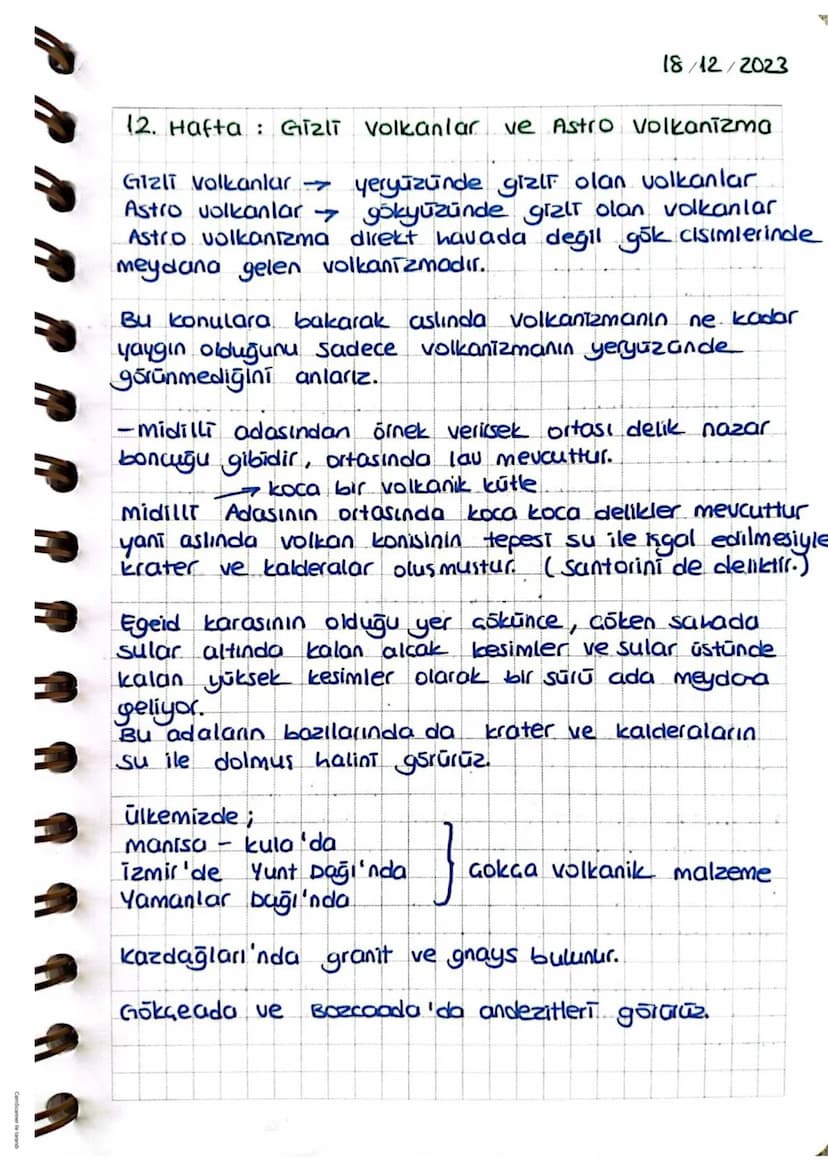 18/12/2023
12. Hafta : Gizli Volkanlar ve Astro Volkanizma
Gizli Volkanlar → yeryüzünde gizli olan volkanlar
Astro volkanlar → gökyüzünde gizli olan volkanlar
Astro volkanizma direkt havada değil gök cisimlerinde
meydana gelen volkanizmadır.
Bu konulara bakarak aslında volkanizmanın ne kadar
yaygın olduğunu sadece volkanizmanın yeryüzünde
görünmediğini anlarız.
- Midilli adasından örnek verirsek ortası delik nazar
boncuğu gibidir, ortasında lav mevcuttur.
→ koca bir volkanik kütle
Midilli Adasının ortasında koca koca delikler mevcuttur
yani aslında volkan konisinin tepesi su ile işgal edilmesiyle
krater ve kalderalar oluşmuştur. (Santorini de deliktir.)
Egeid karasının olduğu yer çökünce, çöken sahada
sular altında kalan alçak kesimler ve sular üstünde
kalan yüksek kesimler olarak bir sürü ada meydana
geliyor.
Bu adaların bazılarında da krater ve kalderaların
su ile dolmuş halini görürüz.
Ülkemizde ;
Manisa - Kula'da
İzmir'de Yunt Dağı'nda } Çokça volkanik malzeme
Yamanlar Dağı'nda
Kazdağları'nda granit ve gnays bulunur.
Gökçeada ve Bozcaada'da andezitleri görürüz.
CamScanner ile tarandı